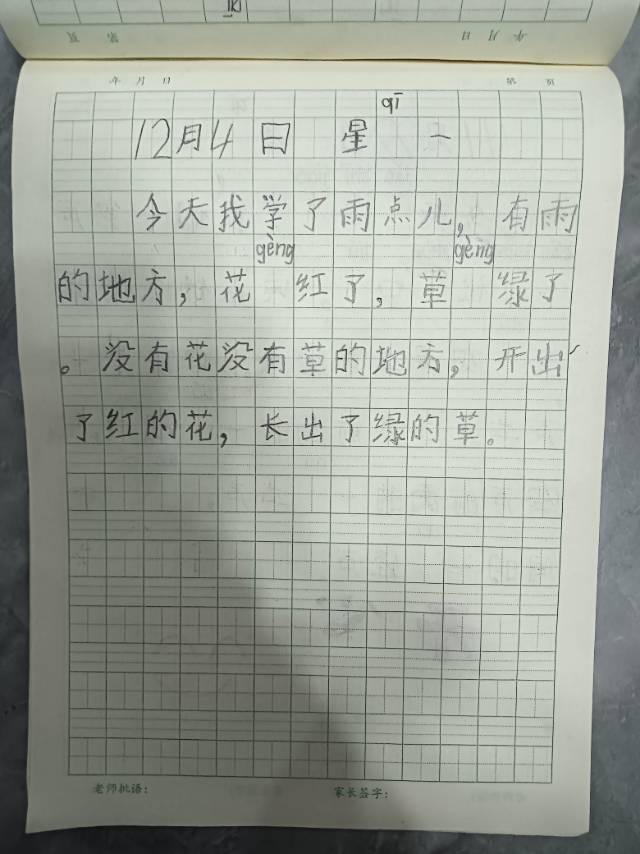 第 页
年 月 日
年 月 日
第 页
12月4日 星qī一
今天找学了雨点儿，有雨
的地方，花gèng红了，草gèng绿了
。没有花没有草的地方，开出
了红的花，长出了绿的草。
老师批语：
家长签字：